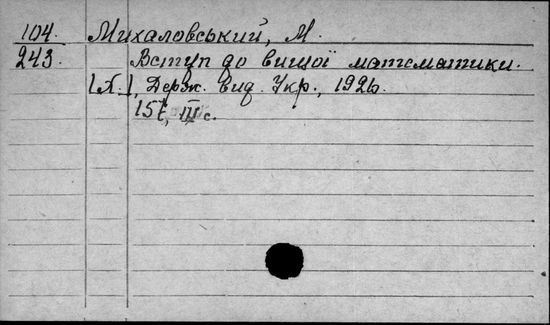 104. Михаловський, М.
243. Вступ до вищої математики.
[Х.], Держ. вид. Укр., 1926.
157, III с.